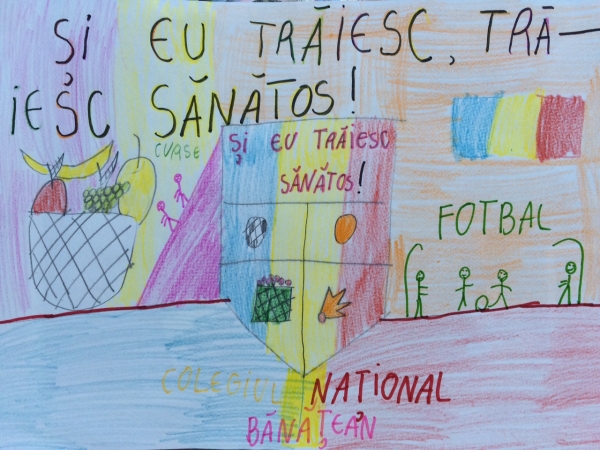 ȘI EU TRĂIESC, TRĂ—
IESC SĂNĂTOS!
CURSE
ȘI EU TRĂIESC
SĂNĂTOS!
FOTBAL
COLEGIUL NAȚIONAL
BĂNĂȚEAN